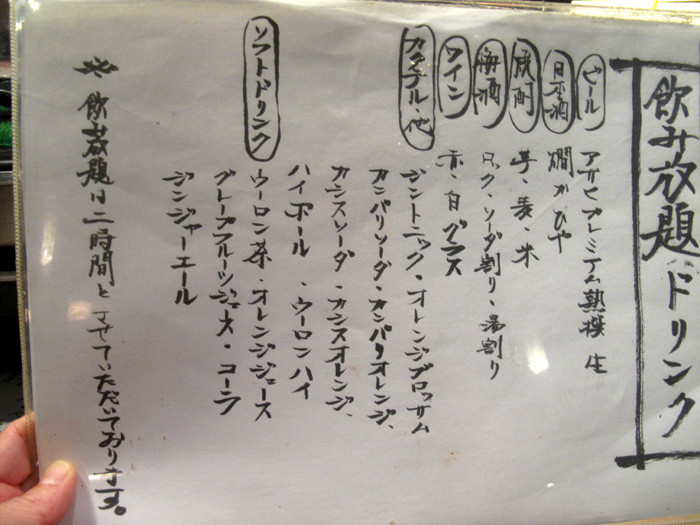 飲み放題ドリンク
ビール アサヒプレミアム熟撰 生
日本酒 燗か ひや
焼酎 芋・麦・米
梅酒 ロック・ソーダ割り・湯割り
ワイン 赤・白 グラス
カクテル・他 ジントニック・オレンジブロッサム
カンパリソーダ・カンパリオレンジ、
カシスソーダ・カシスオレンジ、
ハイボール・ウーロンハイ
ソフトドリンク ウーロン茶・オレンジジュース
グレープフルーツジュース・コーラ
ジンジャーエール
※飲み放題は二時間とさせていただいております。